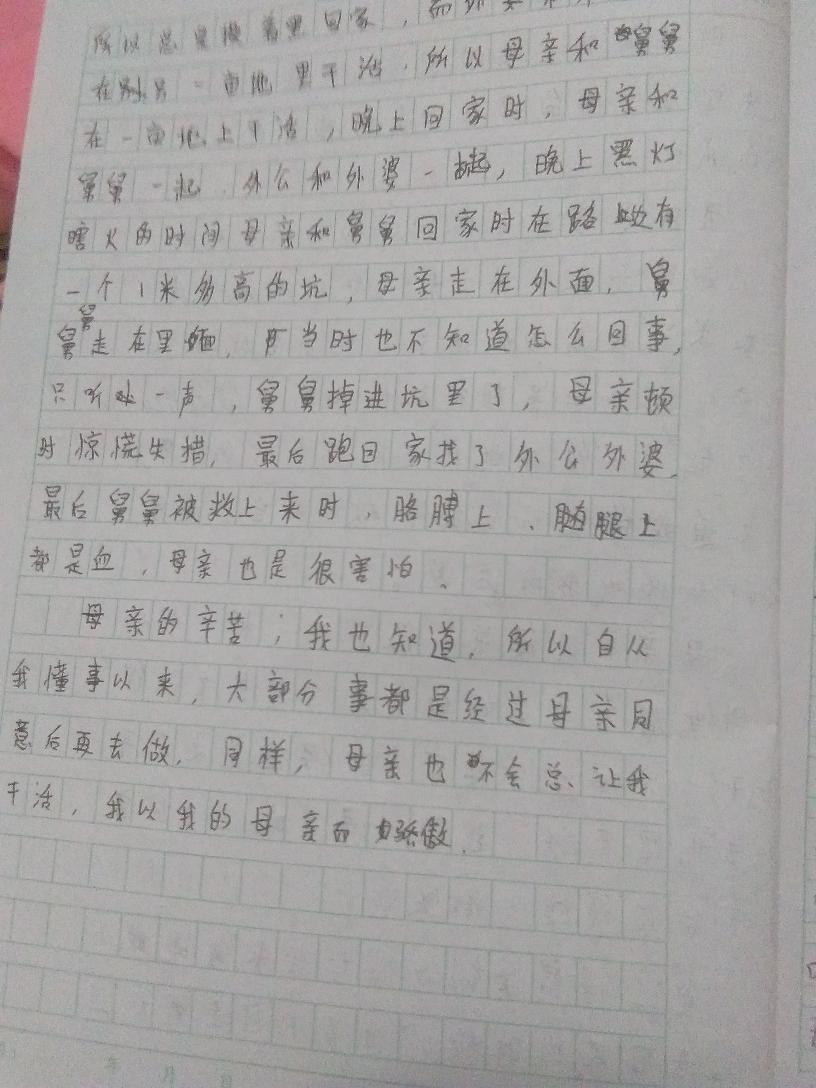 所以总是摸着黑回家，而外婆
在别另一亩地里干活，所以母亲和舅舅
在一亩地上干活，晚上回家时，母亲和
舅舅一起，外公和外婆一起，晚上黑灯
瞎火的时间母亲和舅舅回家时在路边有
一个1米多高的坑，母亲走在外面，舅
舅走在里面，当时也不知道怎么回事，
只听一声，舅舅掉进坑里了，母亲顿
时惊慌失措，最后跑回家找了外公外婆，
最后舅舅被救上来时，胳膊上、腿上
都是血，母亲也是很害怕、
母亲的辛苦；我也知道，所以自从
我懂事以来，大部分事都是经过母亲同
意后再去做，同样，母亲也不会总让我
干活，我以我的母亲而骄傲。
年 月 日